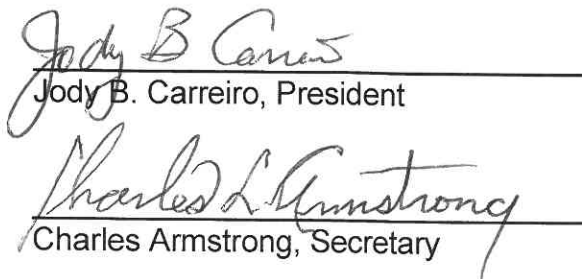 Jody B Carreiro
Jody B. Carreiro, President
Charles L Armstrong
Charles Armstrong, Secretary